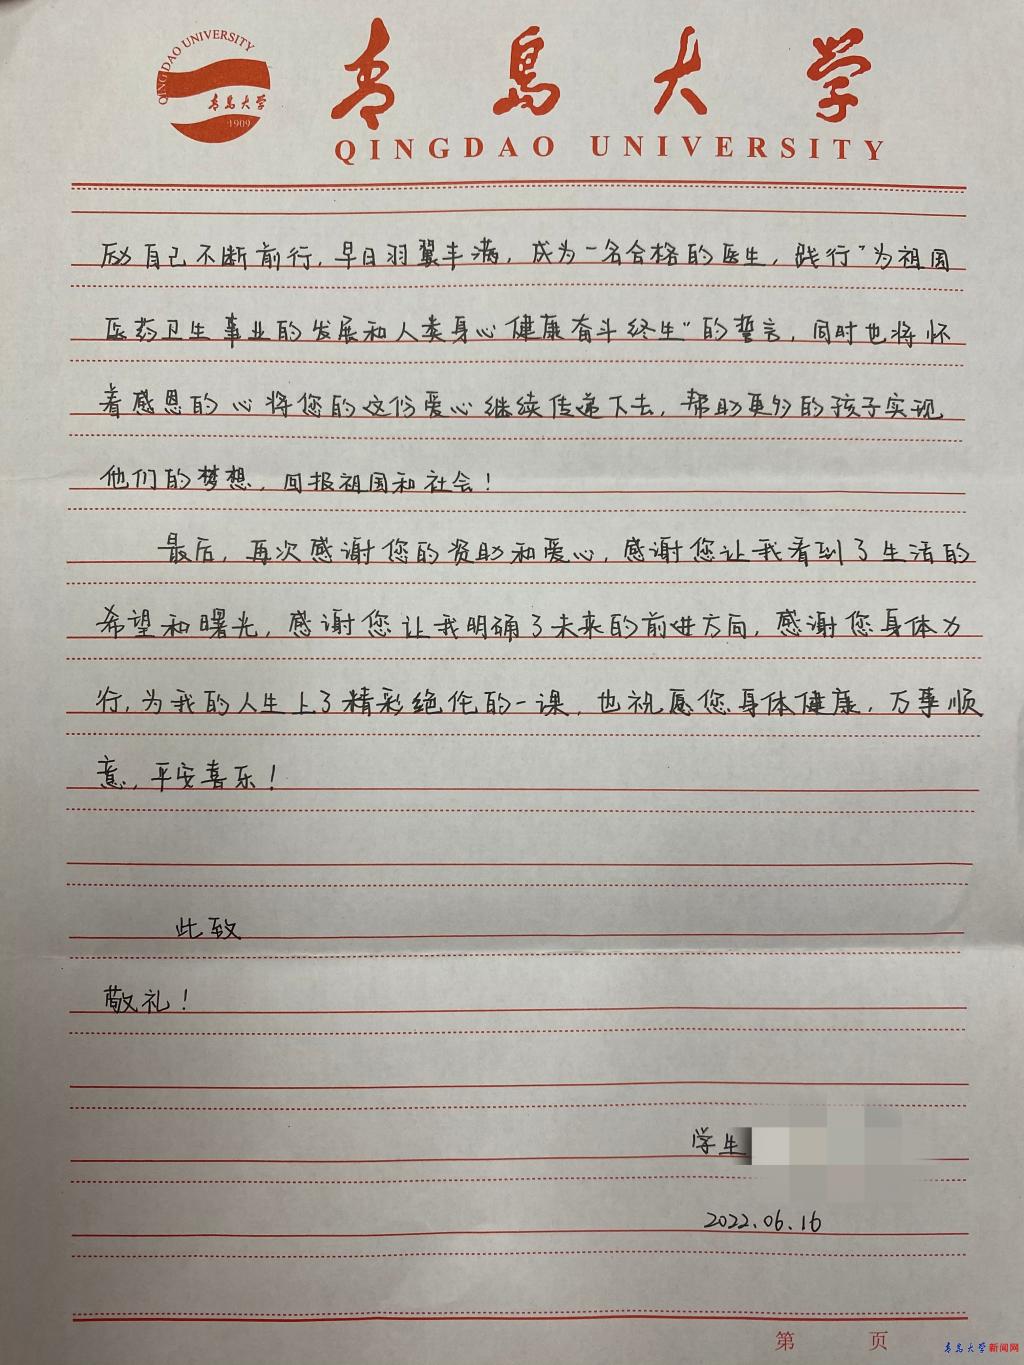 QINGDAO UNIVERSITY
青岛大学
1909
青岛大学
QINGDAO UNIVERSITY
励自己不断前行，早日羽翼丰满，成为一名合格的医生，践行“为祖国
医药卫生事业的发展和人类身心健康奋斗终生”的誓言，同时也将怀
着感恩的心将您的这份爱心继续传递下去，帮助更多的孩子实现
他们的梦想，回报祖国和社会！
最后，再次感谢您的资助和爱心，感谢您让我看到了生活的
希望和曙光，感谢您让我明确了未来的前进方向，感谢您身体力
行，为我的人生上了精彩绝伦的一课，也祝愿您身体健康，万事顺
意，平安喜乐！
此致
敬礼！
学生
2022.06.16
第 页
青岛大学新闻网